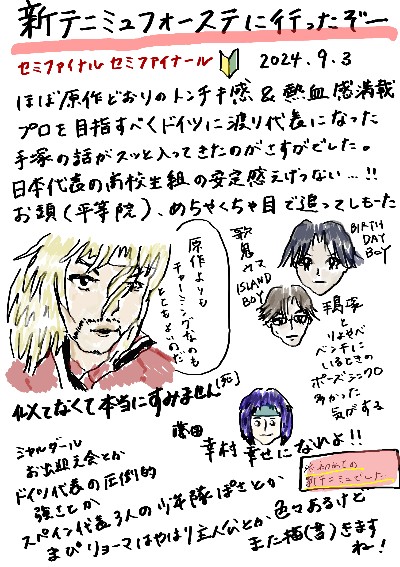 新テニミュフォーステに行ったぞー
セミファイナル セミファイナール 2024.9.3
ほぼ原作どおりのトンチキ感&熱血感満載
プロを目指すべくドイツに渡り代表になった
手塚の話がスッと入ってきたのがさすがでした。
日本代表の高校生組の安定感えげつない…!!
お頭(平等院)、めちゃくちゃ目で追ってしもーた
原作よりも
チャーミングなのも
とてもよいのだ
BIRTH
DAY
BOY
ISLAND
BOY
とりよせべ
ベンチに
いるときの
ポーズシンクロ
多かった
気がする
似てなくて本当にすみません(死)
幸村幸せになれよ!!
※初めての
新テニミュでした
ミャルダール
お出迎え会とか
ドイツ代表の圧倒的
強さとか
スペイン代表3人の少年隊ぽさとか
まびリョーマはやはり主人公とか、色々あるけど
また描(書)きます
ね!